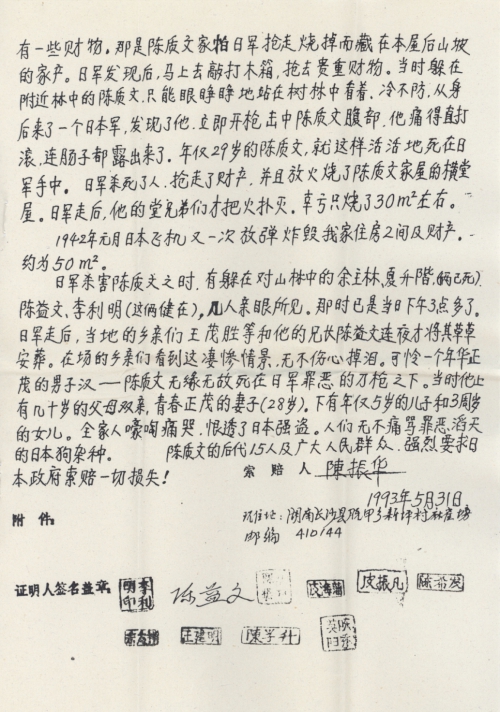 有一些财物。那是陈质文家怕日军抢走烧掉而藏在本屋后山坡
的家产。日军发现后，马上去敲打木箱，抢去贵重财物。当时躲在
附近林中的陈质文，只能眼睁睁地站在树林中看着，冷不防，从身
后来了一个日本军，发现了他，立即开枪击中陈质文腹部，他痛得直打
滚，连肠子都露出来了。年仅29岁的陈质文，就这样活活地死在日
军手中。日军杀死了人，抢走了财产，并且放火烧了陈质文家屋的横堂
屋。日军走后，他的堂兄弟们才把火扑灭。幸亏只烧了30m²左右。
1942年元月日本飞机又一次放弹炸毁我家住房2间及财产。
约为50m²。
日军杀害陈质文之时，有躲在对山林中的余立林、夏升阶，(俩已死)
陈益文、李利明(这俩健在)，几人亲眼所见。那时已是当日下午3点多了。
日军走后，当地的乡亲们王茂胜等和他的兄长陈益文连夜才将其草草
安葬。在场的乡亲们看到这凄惨情景，无不伤心掉泪。可怜一个年华正
茂的男子汉——陈质文无缘无故死在日军罪恶的刀枪之下。当时他上
有几十岁的父母双亲，青春正茂的妻子(28岁)。下有年仅5岁的儿子和3周岁
的女儿。全家人嚎啕痛哭，恨透了日本强盗。人们无不痛骂罪恶滔天
的日本狗杂种。 陈质文的后代15人及广大人民群众，强烈要求日
本政府索赔一切损失！ 索赔人 陳振华
1993年5月31日
附件： 现住地：湖南长沙县 甲乡新坪村
邮编 410144
证明人签名盖章： 李利明印 陈益文 皮振凡 陈
王建明 陈